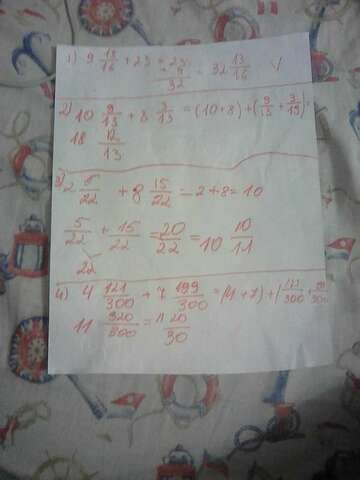 1) 9 13/16 + 23 = 23 + 9/32 = 32 13/16 √
2) 10 9/13 + 8 3/13 = (10+8) + (9/13 + 3/13) =
18 12/13
3) 2 5/22 + 8 15/22 = 2+8=10
5/22 + 15/22 = 20/22 = 10 10/11
22
4) 4 121/300 + 7 199/300 = (4+7) + (121/300 + 199/300
11 320/300 = 1 20/30